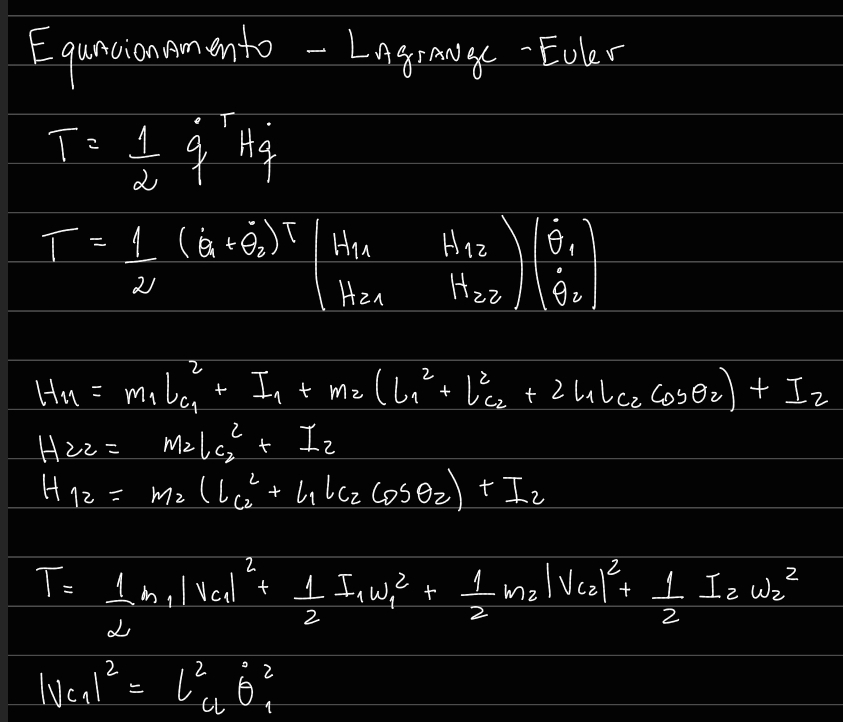 Equacionamento - Lagrange - Euler
T = 1/2 q̇ᵀ H q̇
T = 1/2 (θ̇₁ + θ̇₂)ᵀ (H₁₁ H₁₂ ; H₂₁ H₂₂) (θ̇₁ ; θ̇₂)
H₁₁ = m₁ l_c₁² + I₁ + m₂ (l₁² + l_c₂² + 2 l₁ l_c₂ cos θ₂) + I₂
H₂₂ = m₂ l_c₂² + I₂
H₁₂ = m₂ (l_c₂² + l₁ l_c₂ cos θ₂) + I₂
T = 1/2 m₁ |v_c₁|² + 1/2 I₁ w₁² + 1/2 m₂ |v_c₂|² + 1/2 I₂ w₂²
|v_c₁|² = l_c₁² θ̇₁²